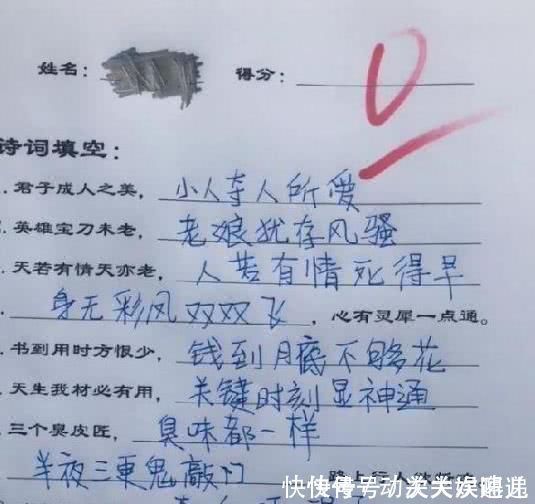 姓名： 得分： 0
诗词填空：
. 君子成人之美， 小人夺人所爱
. 英雄宝刀未老， 老娘犹存风骚
. 天若有情天亦老， 人若有情死得早
. 身无彩凤双双飞 ，心有灵犀一点通。
. 书到用时方恨少， 钱到月底不够花
. 天生我材必有用， 关键时刻显神通
. 三个臭皮匠， 臭味都一样
半夜三更鬼敲门 路上行人欲断魂